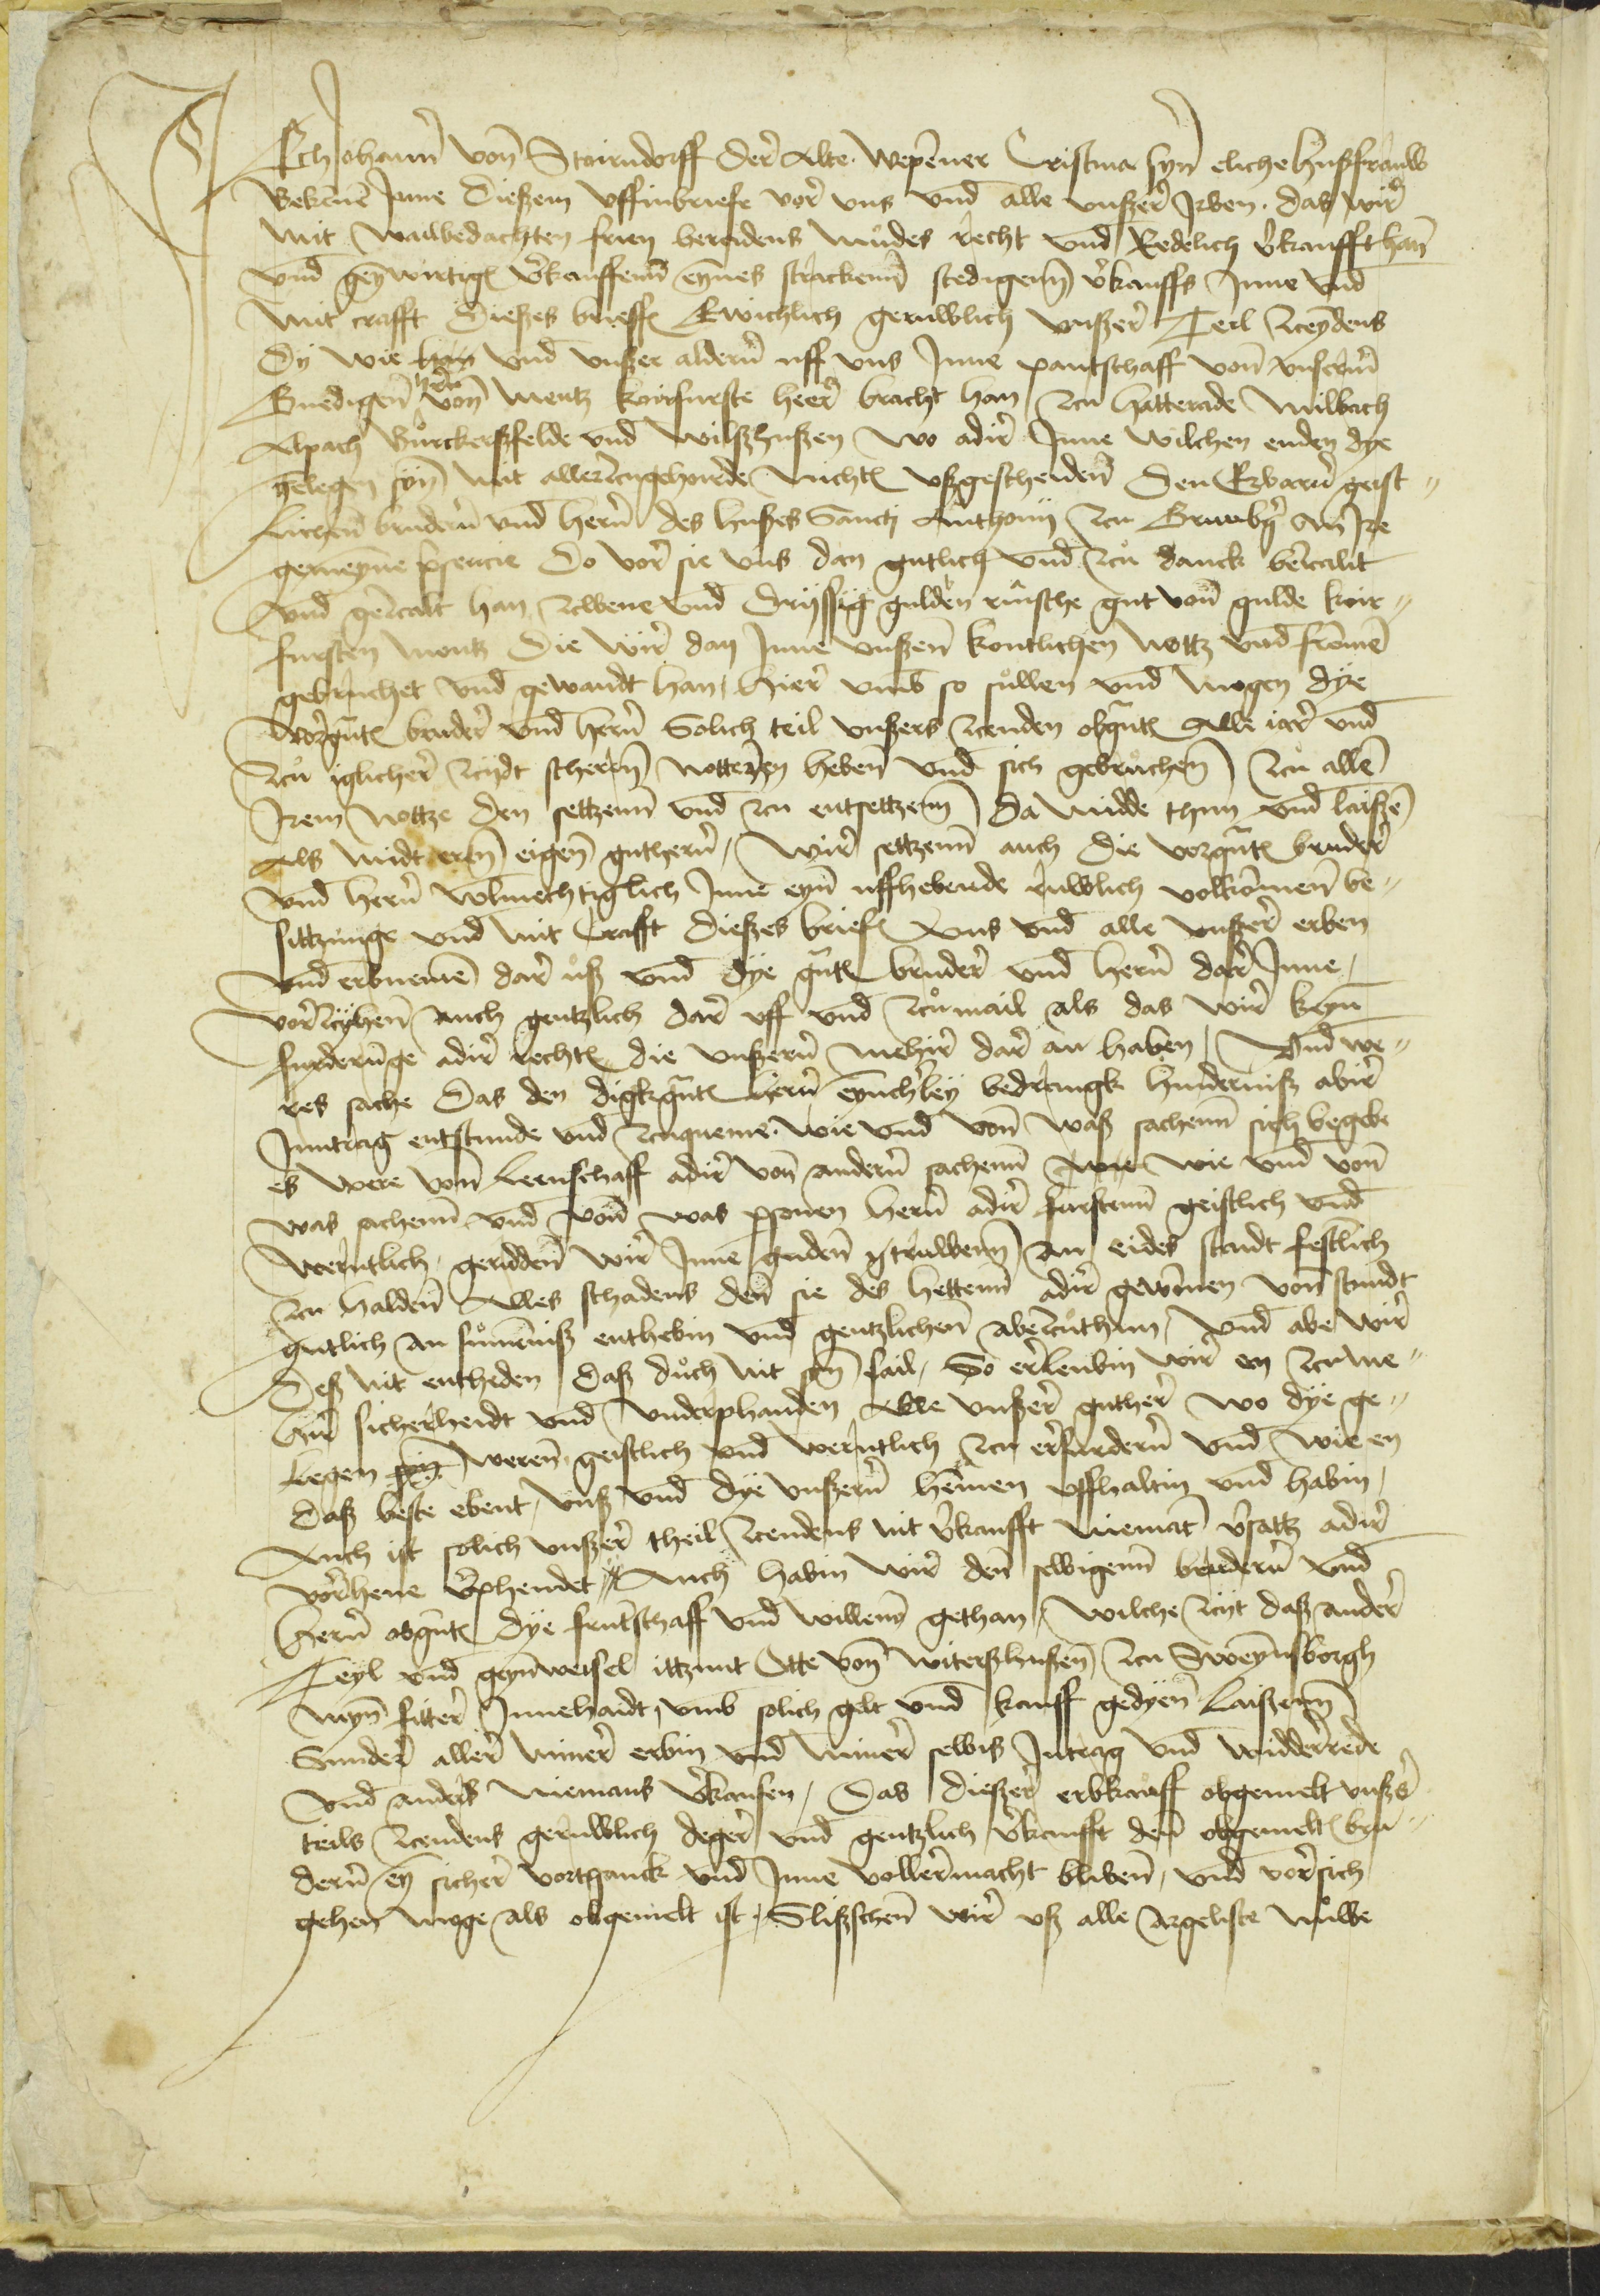 Ich Johann von Steirndorff der Alte Wepener Cristina syn eliche hußfrauw
Bekenne Inne dießem uffinbriefe vor uns und alle unßer Irben das wir
mit wailbedachten frien bereidens mudes recht und Redelich verkaufft han
und genwirtig verkauffenn eynes strackenn stedigenn verkauffs Inne und
mit crafft dießes brieffs Ewichlich geruwlich unßer Teil zceydens
dy wie und unßer aldern uff uns Inne pantschaff von unserm
Gnedigen hern von Mentz kurfurste heer bracht han zcu hatterade Milbach
Aspach Burckerßfelde und Wilßhußen wo adir Inne wilchen enden dye
gelegen syn mit allerzcugehorde nichts ußgescheiden den Erbarn geist
lichen brudern und hern des hußes Sancti Anthonii zcu Grunbg an Ire
gemeyne presencie do vor sie uns dan gutlich und zcu danck betzalit
und getzalt han zcwene und dryssig gulden rinsche gut von gulde kur
fursten montz die wir dan Inne unßen kontlichen nottz und fromen
gebruchet und gewandt han hier umb so sullen und mogen dye
vorgnanten bruder und hern Solich teil unßers zcenden obgnanten Alle iar und
zcu iglicher zcydt scheren notteren heben und sich gebruchen zcu allen
Irem nottze den settzenn und zcu entsettzenn da midde thun und laißen
Als midt eren eigen guthern wir settzenn auch die vorgnanten bruder
und hern volmechtiglich Inne eyn uffhebende ruwlich volkomen be
sittzunge und mit Crafft dießes briefs uns und alle unßer erben
und erbnemen dar uß und dye gnanten bruder und hern dar Inne
vorzcyhen auch gentzlich dar uff und zcumail als das wir keyn
furderunge adir rechts die unßern mehir dar an haben Und we
res sache das den digkgnanten hern eyncherley bedrangk hinderniß abir
Inntrag entstunde und zcuqueme wie und von waß sachenn sich begebe
es were von leenschaff adir von andern sachenn wie und von
was sachenn und von was personen hern adir furstenn geistlich und
werntlich geridden wir Inne guden truwenn an eides stadt festlich
zcu halden Alles schadens den sie des hettenn adir gewonnen von stundt
gutlich an sumeniß enthebin und gentzlichen abezcuthun und abe wir
deß nit entheden daß duch nit syn sail So erleubin wir en zcu me
hir sicherheidt und underphanden Alle unßer guther wo dye ge
legen weren geistlich und werntlich zcu erfurdern und wie en
daß beste ebent unß und dye unßern hemen uffhaltin und habin
Auch ist solich unßer theil zcendens nit verkaufft niemant versatz adir
vorhene verphendet Auch habin wir den selbigenn brudern und
hern obgnanten dye fruntschaff und willens gethan wilche zcyt daß ander
Teyl und geynweisel ittzunt Otte von Witerßhußen zcu Sweynsborgh
myn fitter Innehaidt umb solich gelt und kauff gedyen laißenn
Sunder aller miner erbin und miner selbis Intrag und widderrede
und anders niemans verkaufen Das dießer erbkauff obgemelt unßers
teils zcendens geruwlich deger und gentzlich verkaufft den obgemelten bru
dern eyn sicher vortganck und Inne voller macht bliben und vor sich
gehen moge als obgemelt ist Slißschen wir uß alle Argeliste nuwe